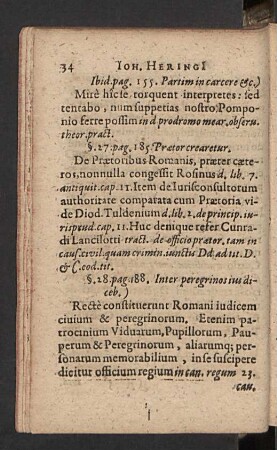 34 IOH. HERINGI
Ibid. pag. 155. Partim in carcere &c.)
Mirè hîc se torquent interpretes: sed
tentabo, num suppetias nostro Pompo-
nio ferre possim in d prodromo mear. observ.
theor. pract.
§. 27. pag. 185. Prætor crearetur.
De Prætoribus Romanis, præter cæte-
ros, nonnulla congessit Rosinus d, lib. 7.
antiquit. cap. 11. Item de Iurisconsultorum
authoritate comparata cum Prætoria vi-
de Diod. Tuldenium d. lib. 2. de princip. iu-
risprud. cap. 11. Huc denique refer Cunra-
di Lancilotti tract. de officio prætor. tam in
caus. civil. quam crimin. iunctis Dd. ad tit. D.
& C. eod. tit.
§. 28. pag. 188. Inter peregrinos ius di-
ceb.)
Rectè constituerunt Romani iudicem
civium & peregrinorum. Etenim pa-
trocinium Viduarum, Pupillorum, Pau-
perum & Peregrinorum, aliarumq; per-
sonarum memorabilium, in se suscipere
dicitur officium regium in can. regum 23.
can.